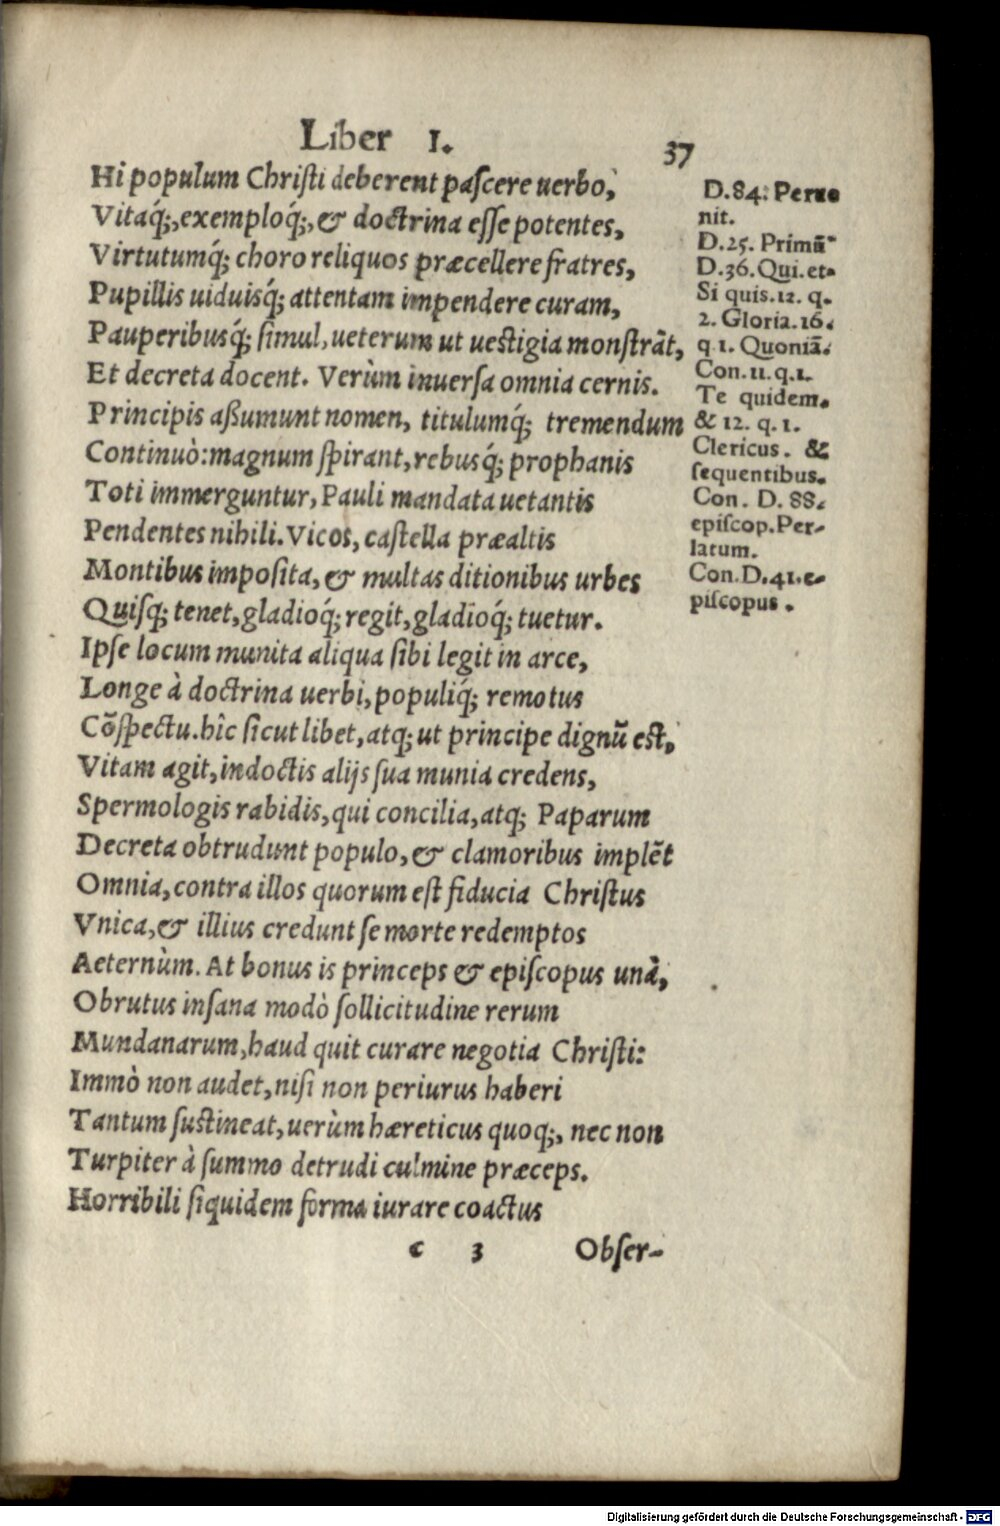 Liber I. 37
Hi populum Christi deberent pascere uerbo,
Vitaq́;, exemploq́;, & doctrina esse potentes,
Virtutumq́; choro reliquos præcellere fratres,
Pupillis uiduisq́; attentam impendere curam,
Pauperibusq́; simul, ueterum ut uestigia monstrãt,
Et decreta docent. Verùm inuersa omnia cernis.
Principis aßumunt nomen, titulumq́; tremendum
Continuò: magnum spirant, rebusq́; prophanis
Toti immerguntur, Pauli mandata uetantis
Pendentes nihili. Vicos, castella præaltis
Montibus imposita, & multas ditionibus urbes
Quisq; tenet, gladioq́; regit, gladioq́; tuetur.
Ipse locum munita aliqua sibi legit in arce,
Longe à doctrina uerbi, populiq́; remotus
Cõspectu. hîc sicut libet, atq; ut principe dignũ est,
Vitam agit, indoctis alijs sua munia credens,
Spermologis rabidis, qui concilia, atq; Paparum
Decreta obtrudunt populo, & clamoribus implẽt
Omnia, contra illos quorum est fiducia Christus
Vnica, & illius credunt se morte redemptos
Aeternùm. At bonus is princeps & episcopus unà,
Obrutus insana modò sollicitudine rerum
Mundanarum, haud quit curare negotia Christi:
Immò non audet, nisi non periurus haberi
Tantum sustineat, uerùm hæreticus quoq;, nec non
Turpiter à summo detrudi culmine præceps.
Horribili siquidem forma iurare coactus
c 3 Obser-
D.84. Perue
nit.
D.25. Primũ
D.36. Qui. et
Si quis. 12. q.
2. Gloria. 16.
q 1. Quoniã.
Con. 11. q. 1.
Te quidem.
& 12. q. 1.
Clericus. &
sequentibus.
Con. D. 88.
episcop. Per-
latum.
Con. D. 41. e-
piscopus.
Digitalisierung gefördert durch die Deutsche Forschungsgemeinschaft - DFG